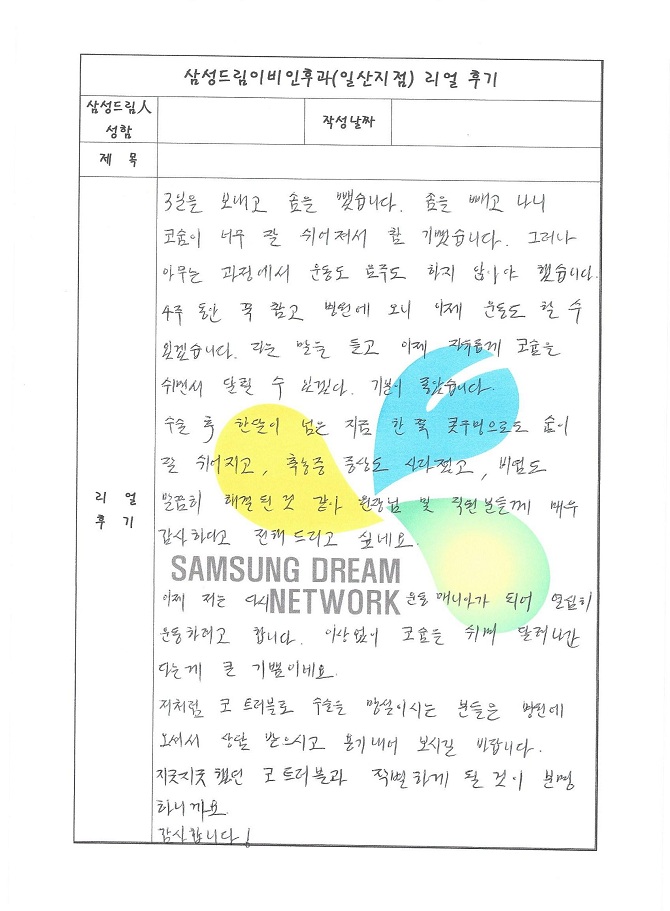 삼성드림이비인후과(일산지점) 리얼 후기
삼성드림人 성함
작성날짜
제 목
리 얼 후 기
3일을 보내고 솜을 뺐습니다. 솜을 빼고 나니
코숨이 너무 잘 쉬어져서 참 기뻤습니다. 그러나
아무는 과정에서 운동도 음주도 하지 않아야 했습니다.
4주 동안 꾹 참고 병원에 오니 이제 운동도 할 수
있겠습니다. 라는 말을 듣고 이제 자유롭게 코숨을
쉬면서 달릴 수 있겠다. 기분이 좋았습니다.
수술 후 한달이 넘은 지금 한 쪽 콧구멍으로도 숨이
잘 쉬어지고, 축농증 증상도 사라졌고, 비염도
말끔히 해결된 것 같아 원장님 및 직원분들께 매우
감사하다고 전해 드리고 싶네요.
SAMSUNG DREAM
NETWORK
이제 저는 다시 운동 매니아가 되어 열심히
운동하려고 합니다. 이상없이 코숨을 쉬며 달려나간
다는게 큰 기쁨이네요.
저처럼 코 트러블로 수술을 망설이시는 분들은 병원에
오셔서 상담 받으시고 용기내어 보시길 바랍니다.
지긋지긋 했던 코 트러블과 작별하게 될 것이 분명
하니까요.
감사합니다!